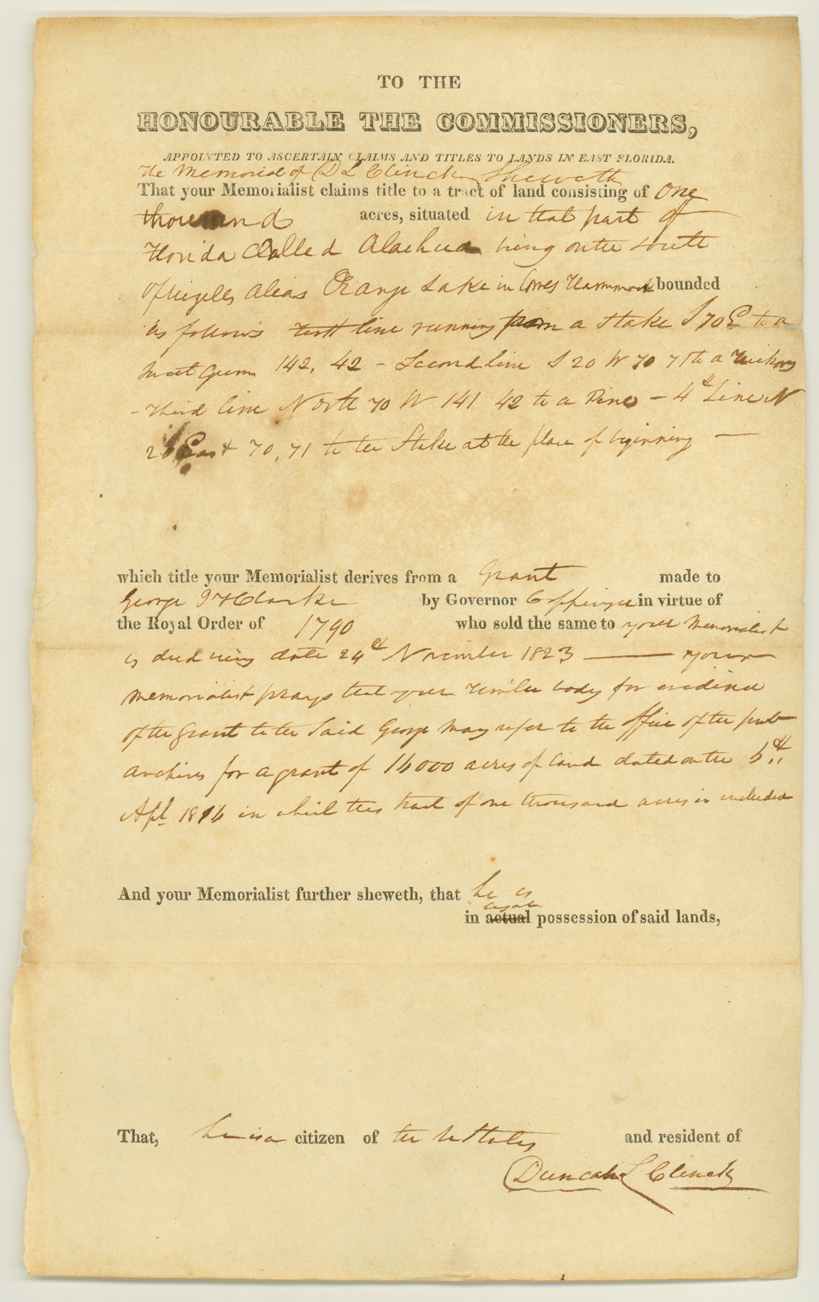 TO THE
HONOURABLE THE COMMISSIONERS,
APPOINTED TO ASCERTAIN CLAIMS AND TITLES TO LANDS IN EAST FLORIDA.
The Memorial of D L Clinch Sheweth
That your Memorialist claims title to a tract of land consisting of One
thousand acres, situated in that part of
Florida Called Alachua being on the south
of alias Orange Lake in Hammock bounded
as follows first line running from a Stake S 70 E to a
Sweet Gum 142, 42 - Second line S 20 W 70 71 to a Hickory
- Third line North 70 W 141 42 to a Pine - 4th Line N
20 East 70, 71 to the Stake at the place of beginning —
which title your Memorialist derives from a Grant made to
George J F Clarke by Governor Coppinger in virtue of
the Royal Order of 1790 who sold the same to your Memorialist
as deed being date 24th November 1823 — your
Memorialist prays that your body for evidence
of the Grant to the Said George may refer to the office of the pub
archives for a grant of 16000 acres of land dated on the 6th
Apl 1816 in which this tract of one thousand acres is included
And your Memorialist further sheweth, that he is
in actual possession of said lands,
That, he is a citizen of the U States and resident of
Duncan L Clinch